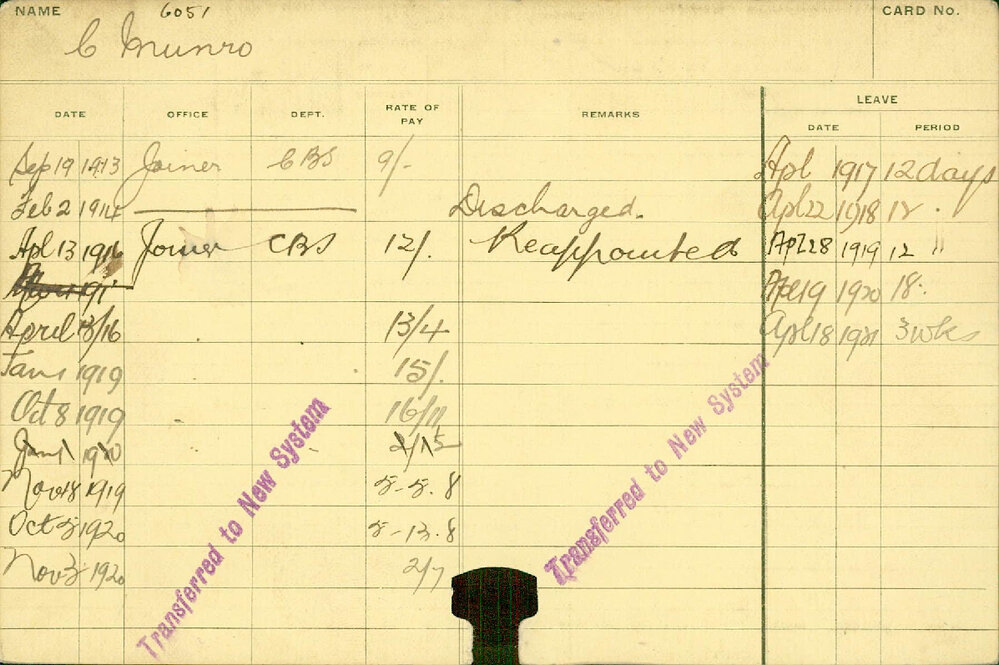 NAME 6051 CARD No.
C Munro
DATE OFFICE DEPT. RATE OF PAY REMARKS LEAVE
DATE PERIOD
Sep 19 1913 Joiner CBS 9/- Apl 1917 12 days
Feb 2 1914 Discharged. Apl 22 1918 12 "
Apl 13 1916 Joiner CBS 12/. Reappointed Apl 28 1919 12 "
Apl 19 1920 18
April 13/16 13/4 Apl 18 1921 3 wks
Jan 1 1919 15/.
Oct 8 1919 16/11
Jan 1 1920
Nov 18 1919 5-5.8
Oct 5 1920 5-13.8
Nov 3 1920 2/7
Transferred to New System
Transferred to New System